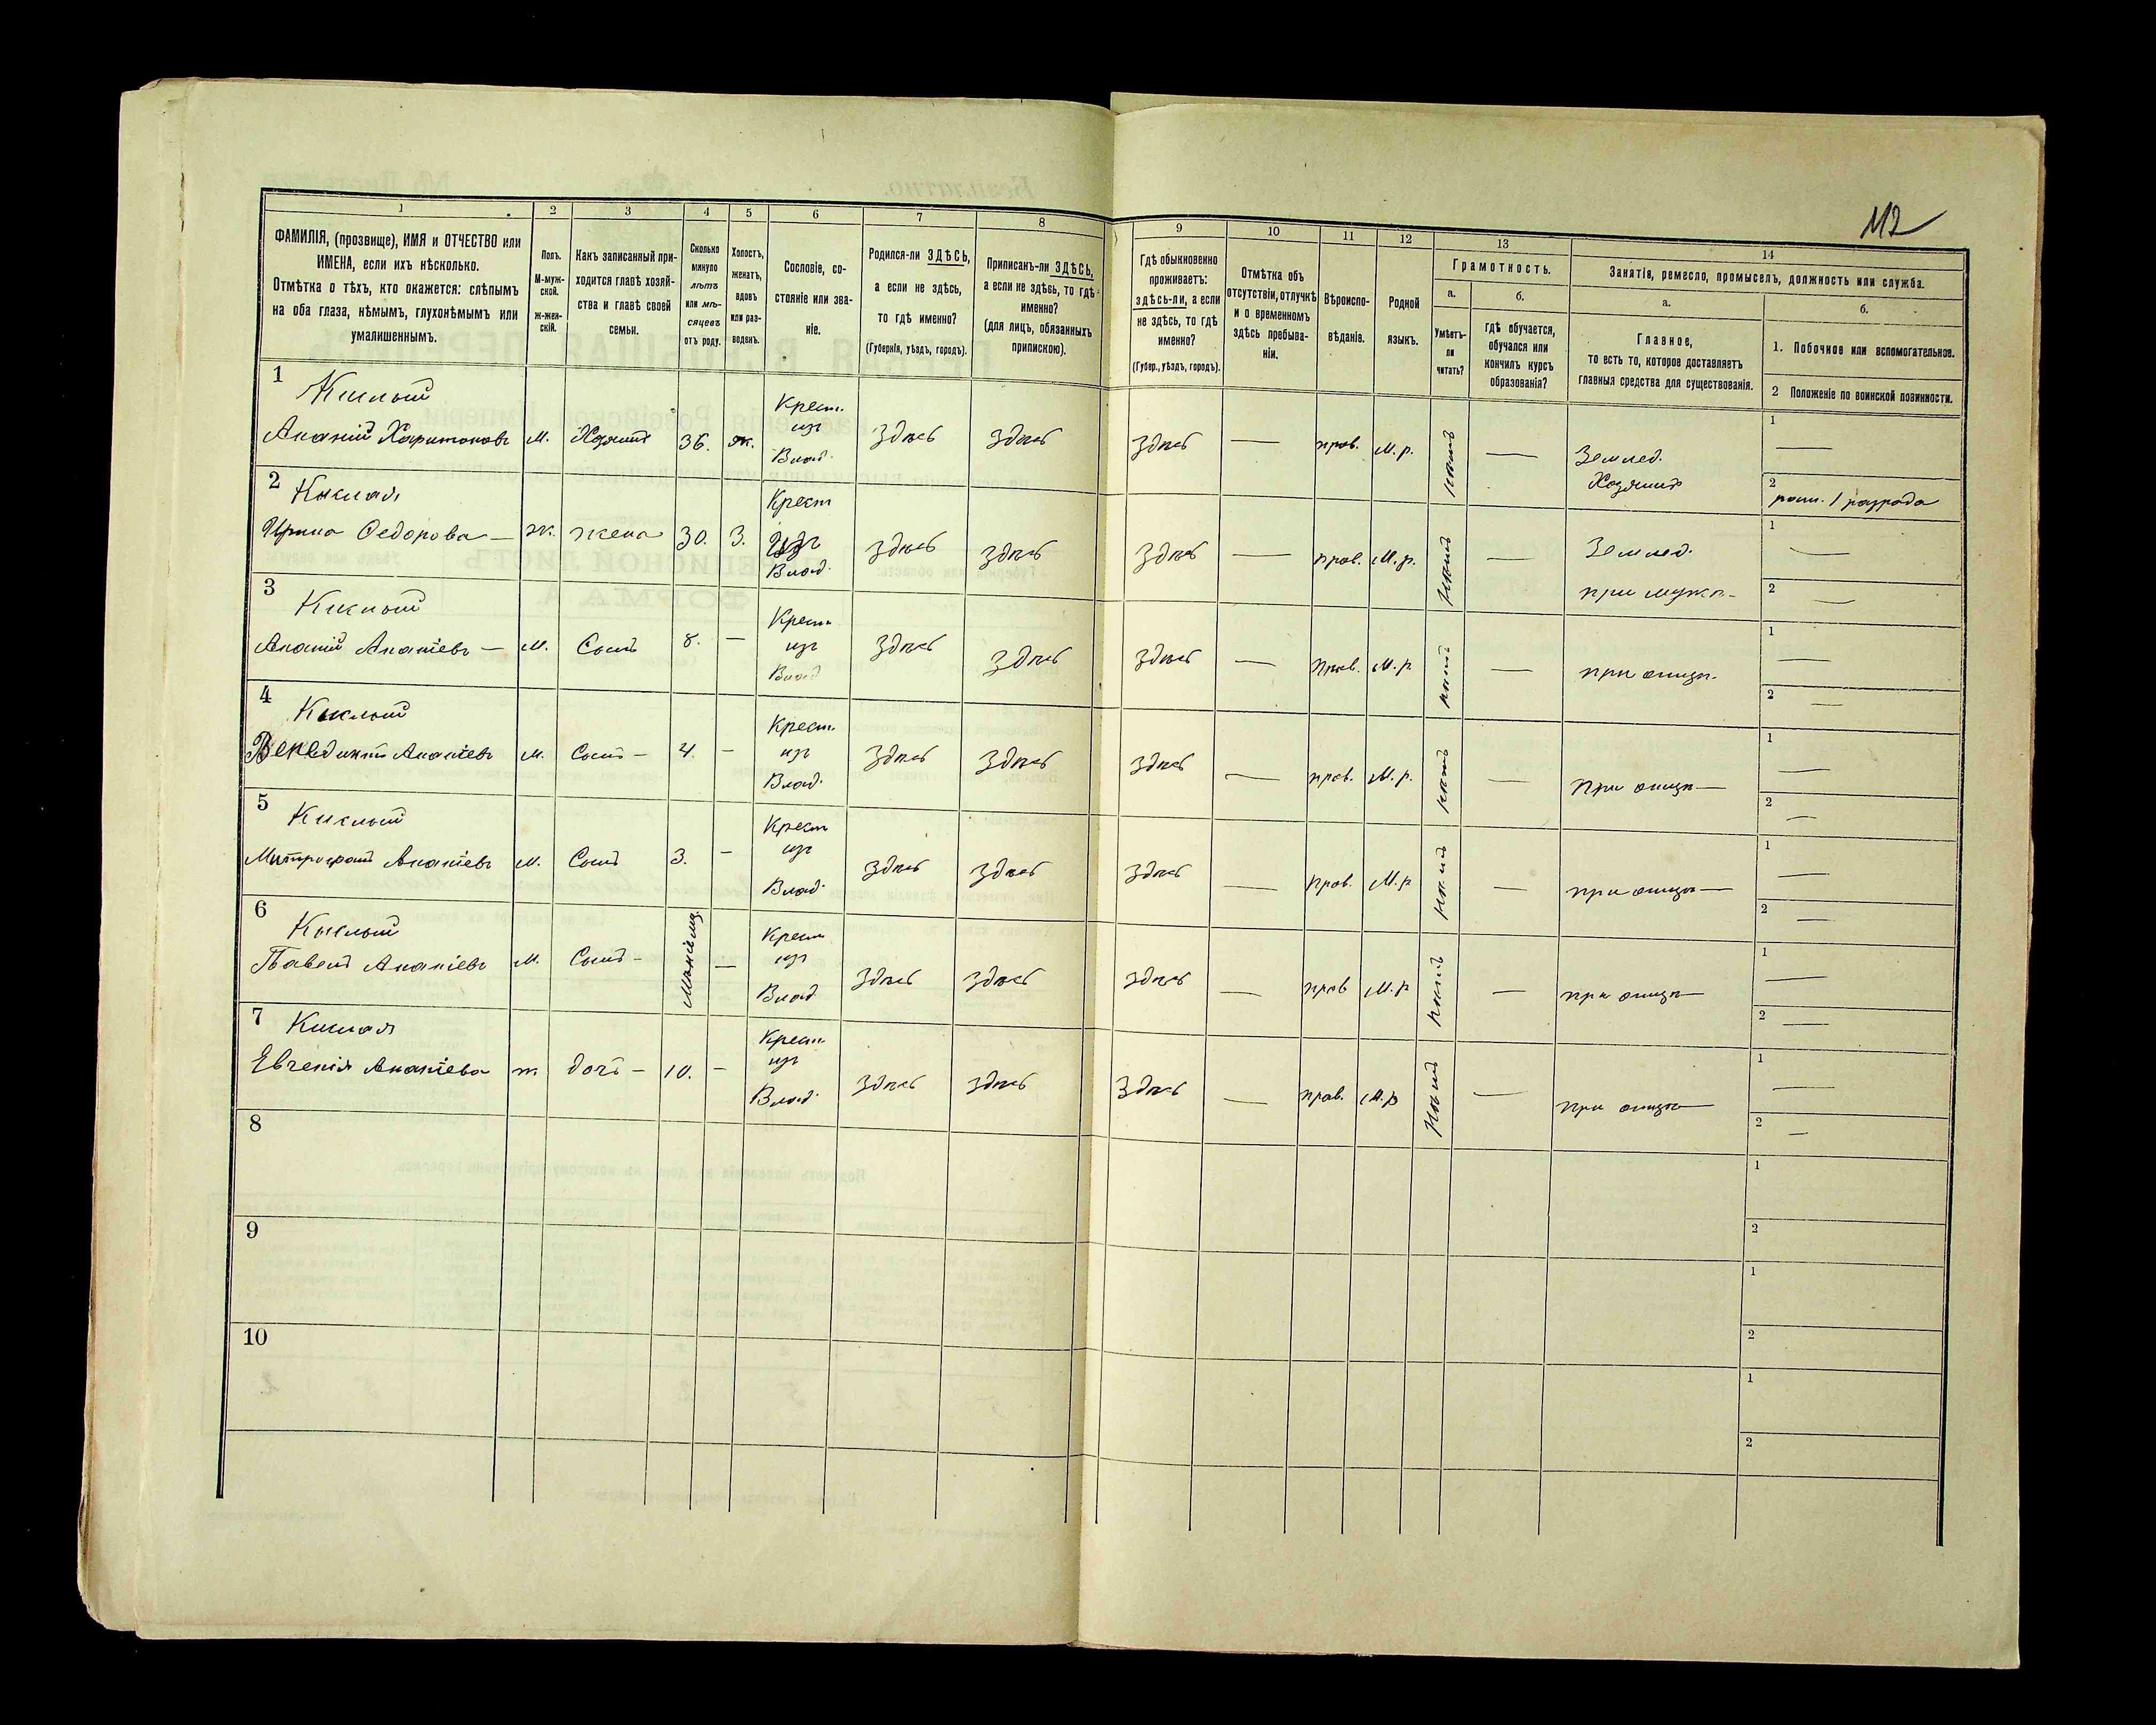 112
1 2 3 4 5 6 7 8 9 10 11 12 13 14
ФАМИЛІЯ, (прозвище), ИМЯ и ОТЧЕСТВО или
ИМЕНА, если ихъ нѣсколько.
Отмѣтка о тѣхъ, кто окажется: слѣпымъ
на оба глаза, нѣмымъ, глухонѣмымъ или
умалишеннымъ.
Полъ.
М-муж-
ской.
ж-жен-
скій.
Какъ записанный при-
ходится главѣ хозяй-
ства и главѣ своей
семьи.
Сколько
минуло
лѣтъ
или мѣ-
сяцевъ
отъ роду.
Холостъ,
женатъ,
вдовъ
или раз-
веденъ.
Сословіе, со-
стояніе или зва-
ніе.
Родился-ли ЗДѢСЬ,
а если не здѣсь,
то гдѣ именно?
(Губернія, уѣздъ, городъ).
Приписанъ-ли ЗДѢСЬ,
а если не здѣсь, то гдѣ
именно?
(для лицъ, обязанныхъ
припискою).
Гдѣ обыкновенно
проживаетъ:
здѣсь-ли, а если
не здѣсь, то гдѣ
именно?
(Губер., уѣздъ, городъ).
Отмѣтка объ
отсутствіи, отлучкѣ
и о временномъ
здѣсь пребыва-
ніи.
Вѣроиспо-
вѣданіе.
Родной
языкъ.
Грамотность.
а.
Умѣетъ-
ли
читать?
б.
гдѣ обучается,
обучался или
кончилъ курсъ
образованія?
Занятіе, ремесло, промыселъ, должность или служба.
а.
Главное,
то есть то, которое доставляетъ
главныя средства для существованія.
б.
1. Побочное или вспомогательное.
2 Положеніе по воинской повинности.
1
Кислый
Ананій Харитоновъ м. Хозяинъ 36. ж. Крест. изъ Влад. здѣсь здѣсь здѣсь — прав. М.р. нѣтъ — Землед. Хозяинъ 1 —
2 ратн. 1 разряда
2 Кислая
Ирина Федорова — ж. жена 30. З. Крест изъ Влад. здѣсь здѣсь здѣсь — прав. М.р. нѣтъ — Землед. при мужѣ- 1 —
2 —
3 Кислый
Ананій Ананіевъ — м. Сынъ 8. — Крест. изъ Влад здѣсь здѣсь здѣсь — прав. М.р нѣтъ — при отцѣ- 1 —
2 —
4 Кислый
Венедиктъ Ананіевъ м. Сынъ — 4. — Крест. изъ Влад. здѣсь здѣсь здѣсь — прав. М.р. нѣтъ — при отцѣ — 1 —
2 —
5 Кислый
Митрофанъ Ананіевъ м. Сынъ 3. — Крест изъ Влад. здѣсь здѣсь здѣсь — прав. М.р нѣтъ — при отцѣ — 1 —
2 —
6 Кислый
Павелъ Ананіевъ м. Сынъ — — Крест изъ Влад здѣсь здѣсь здѣсь — прав М.р нѣтъ — при отцѣ — 1 —
2 —
7 Кислая
Евгенія Ананіева ж дочь — 10. — Крест. изъ Влад. здѣсь здѣсь здѣсь — прав. М.р нѣтъ — при отцѣ — 1 —
2 —
8 1
2
9 1
2
10 1
2